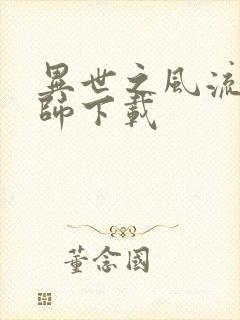 異世之風流
師下載
董念國